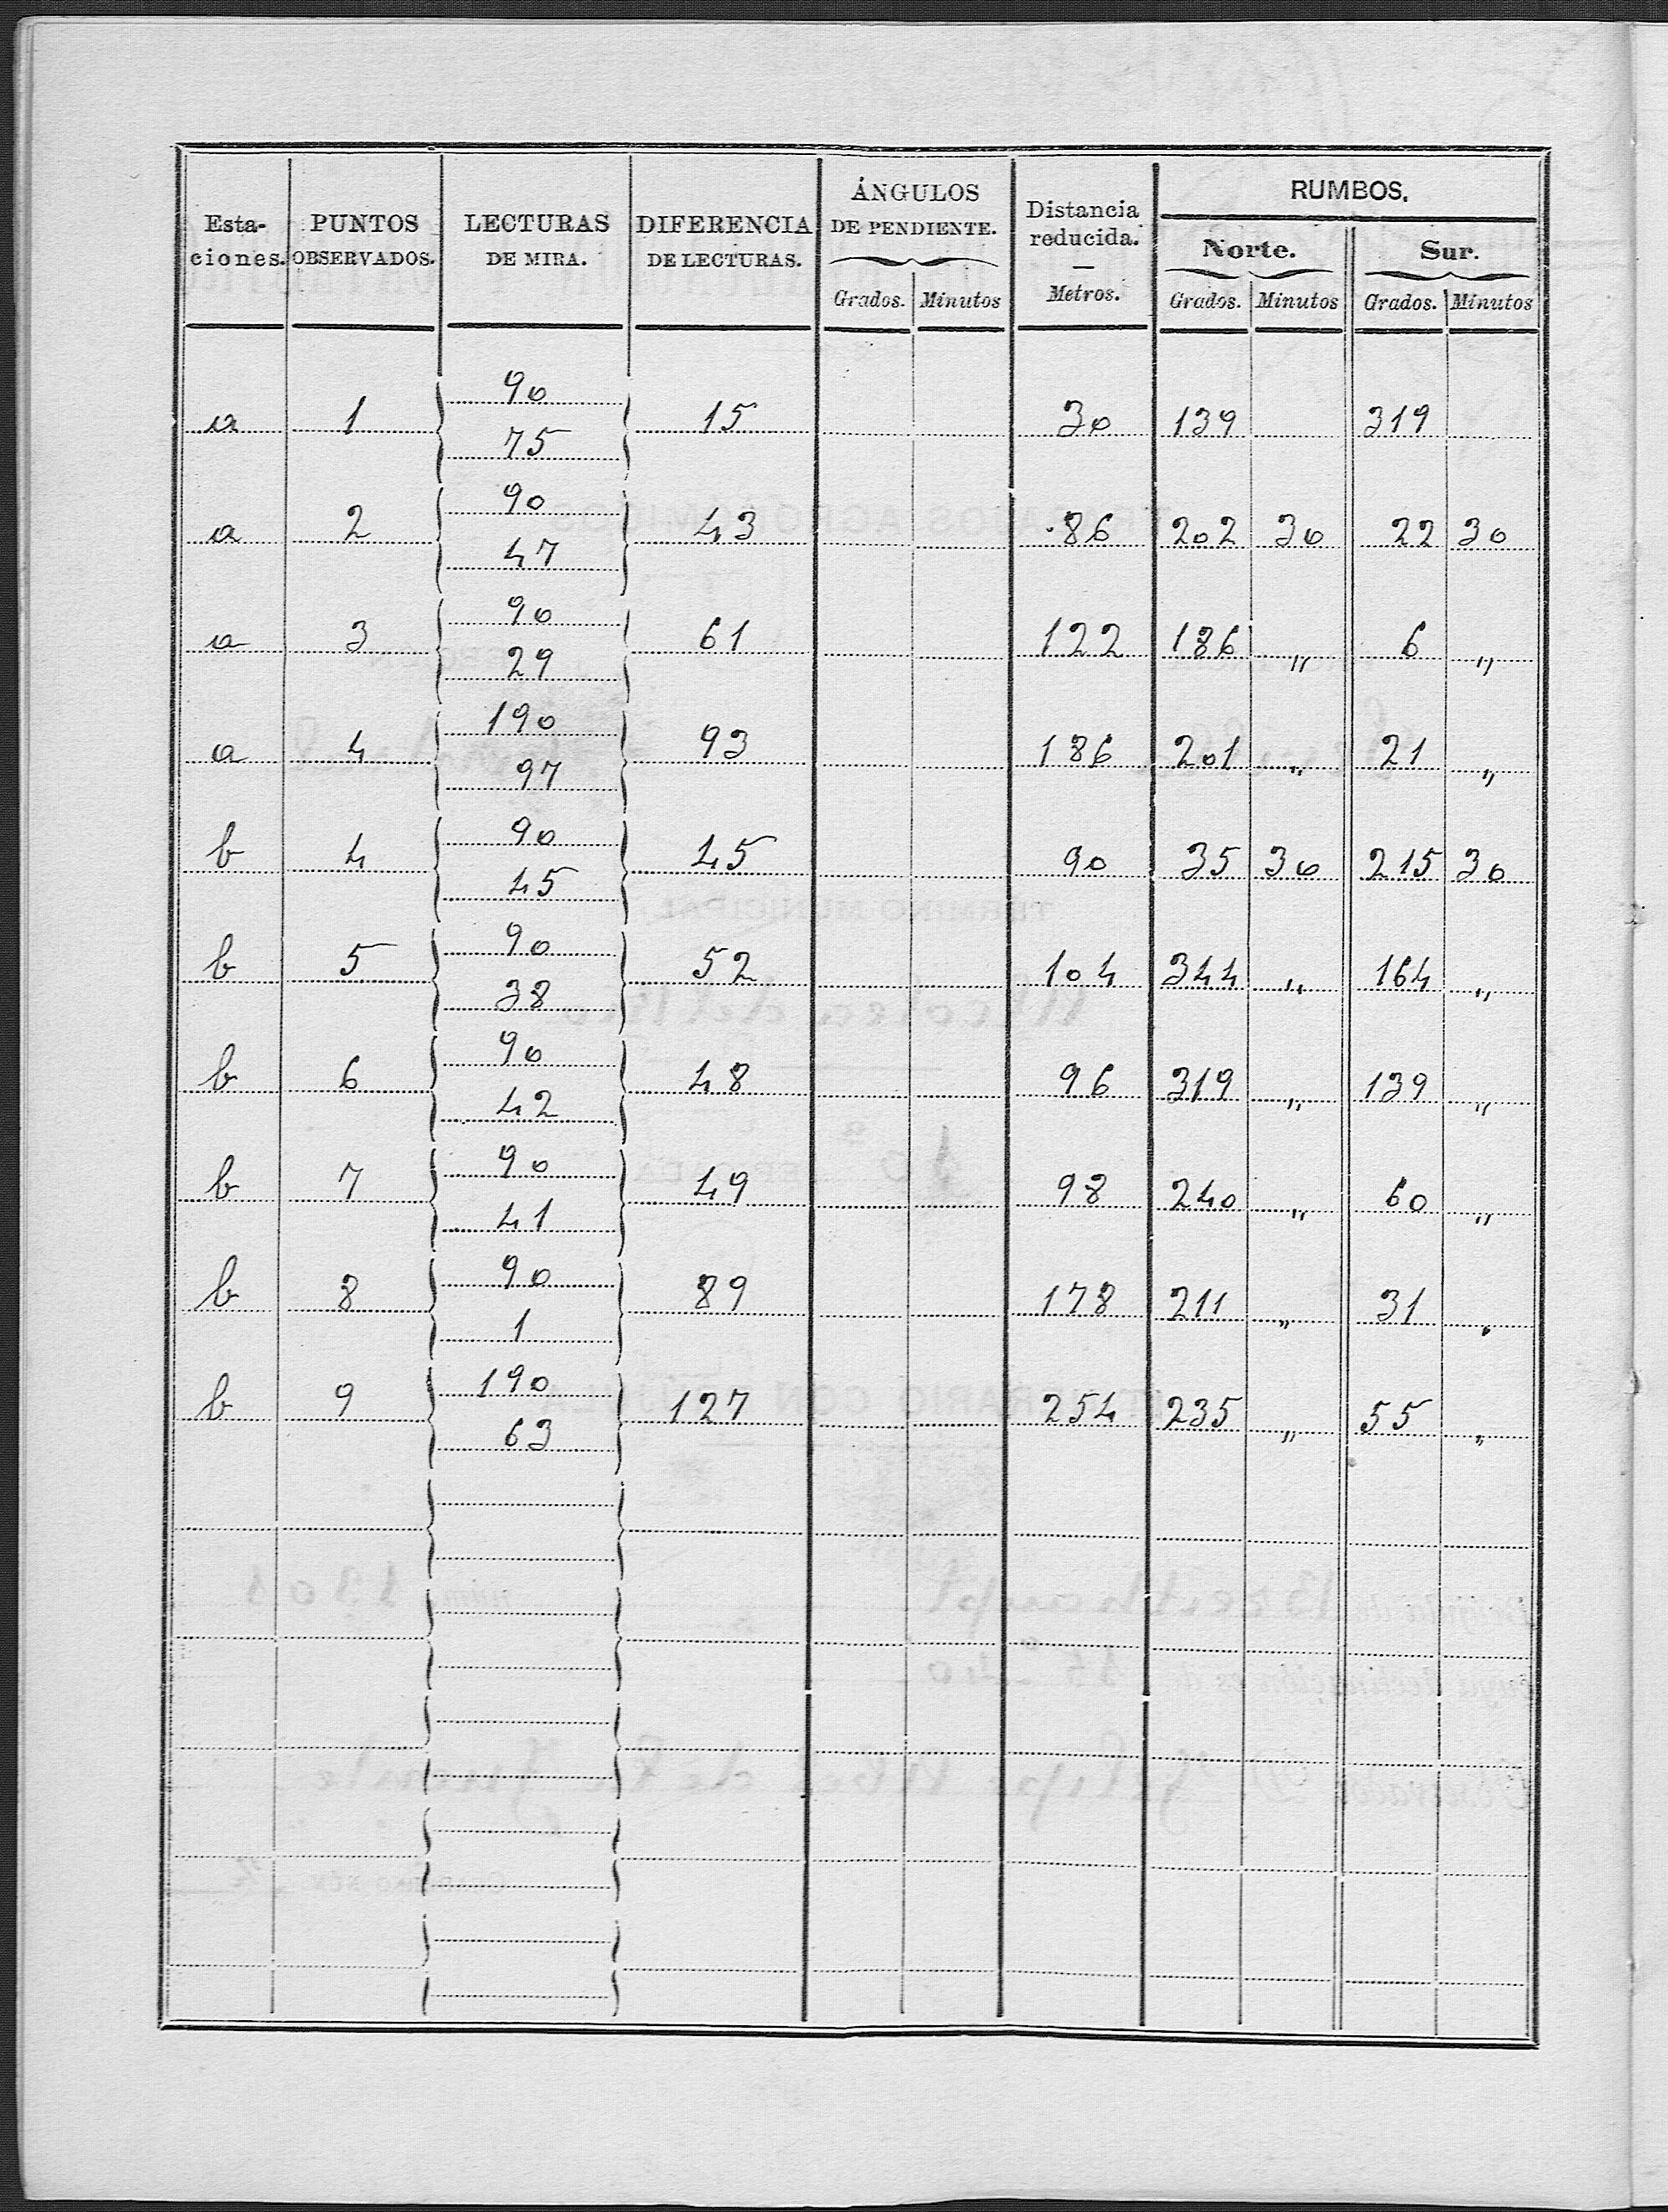 Esta-ciones. PUNTOS OBSERVADOS. LECTURAS DE MIRA. DIFERENCIA DE LECTURAS. ÁNGULOS DE PENDIENTE. Distancia reducida. — Metros. RUMBOS.
Norte. Sur.
Grados. Minutos Grados. Minutos Grados. Minutos
90
a 1 15 30 139 319
75
90
a 2 43 86 202 30 22 30
47
90
a 3 61 122 186 " 6 "
29
190
a 4 93 186 201 " 21 "
97
90
b 4 45 90 35 30 215 30
45
90
b 5 52 104 344 " 164 "
38
90
b 6 48 96 319 " 139 "
42
90
b 7 49 98 240 " 60 "
41
90
b 8 89 178 211 " 31 "
1
190
b 9 127 254 235 " 55 "
63